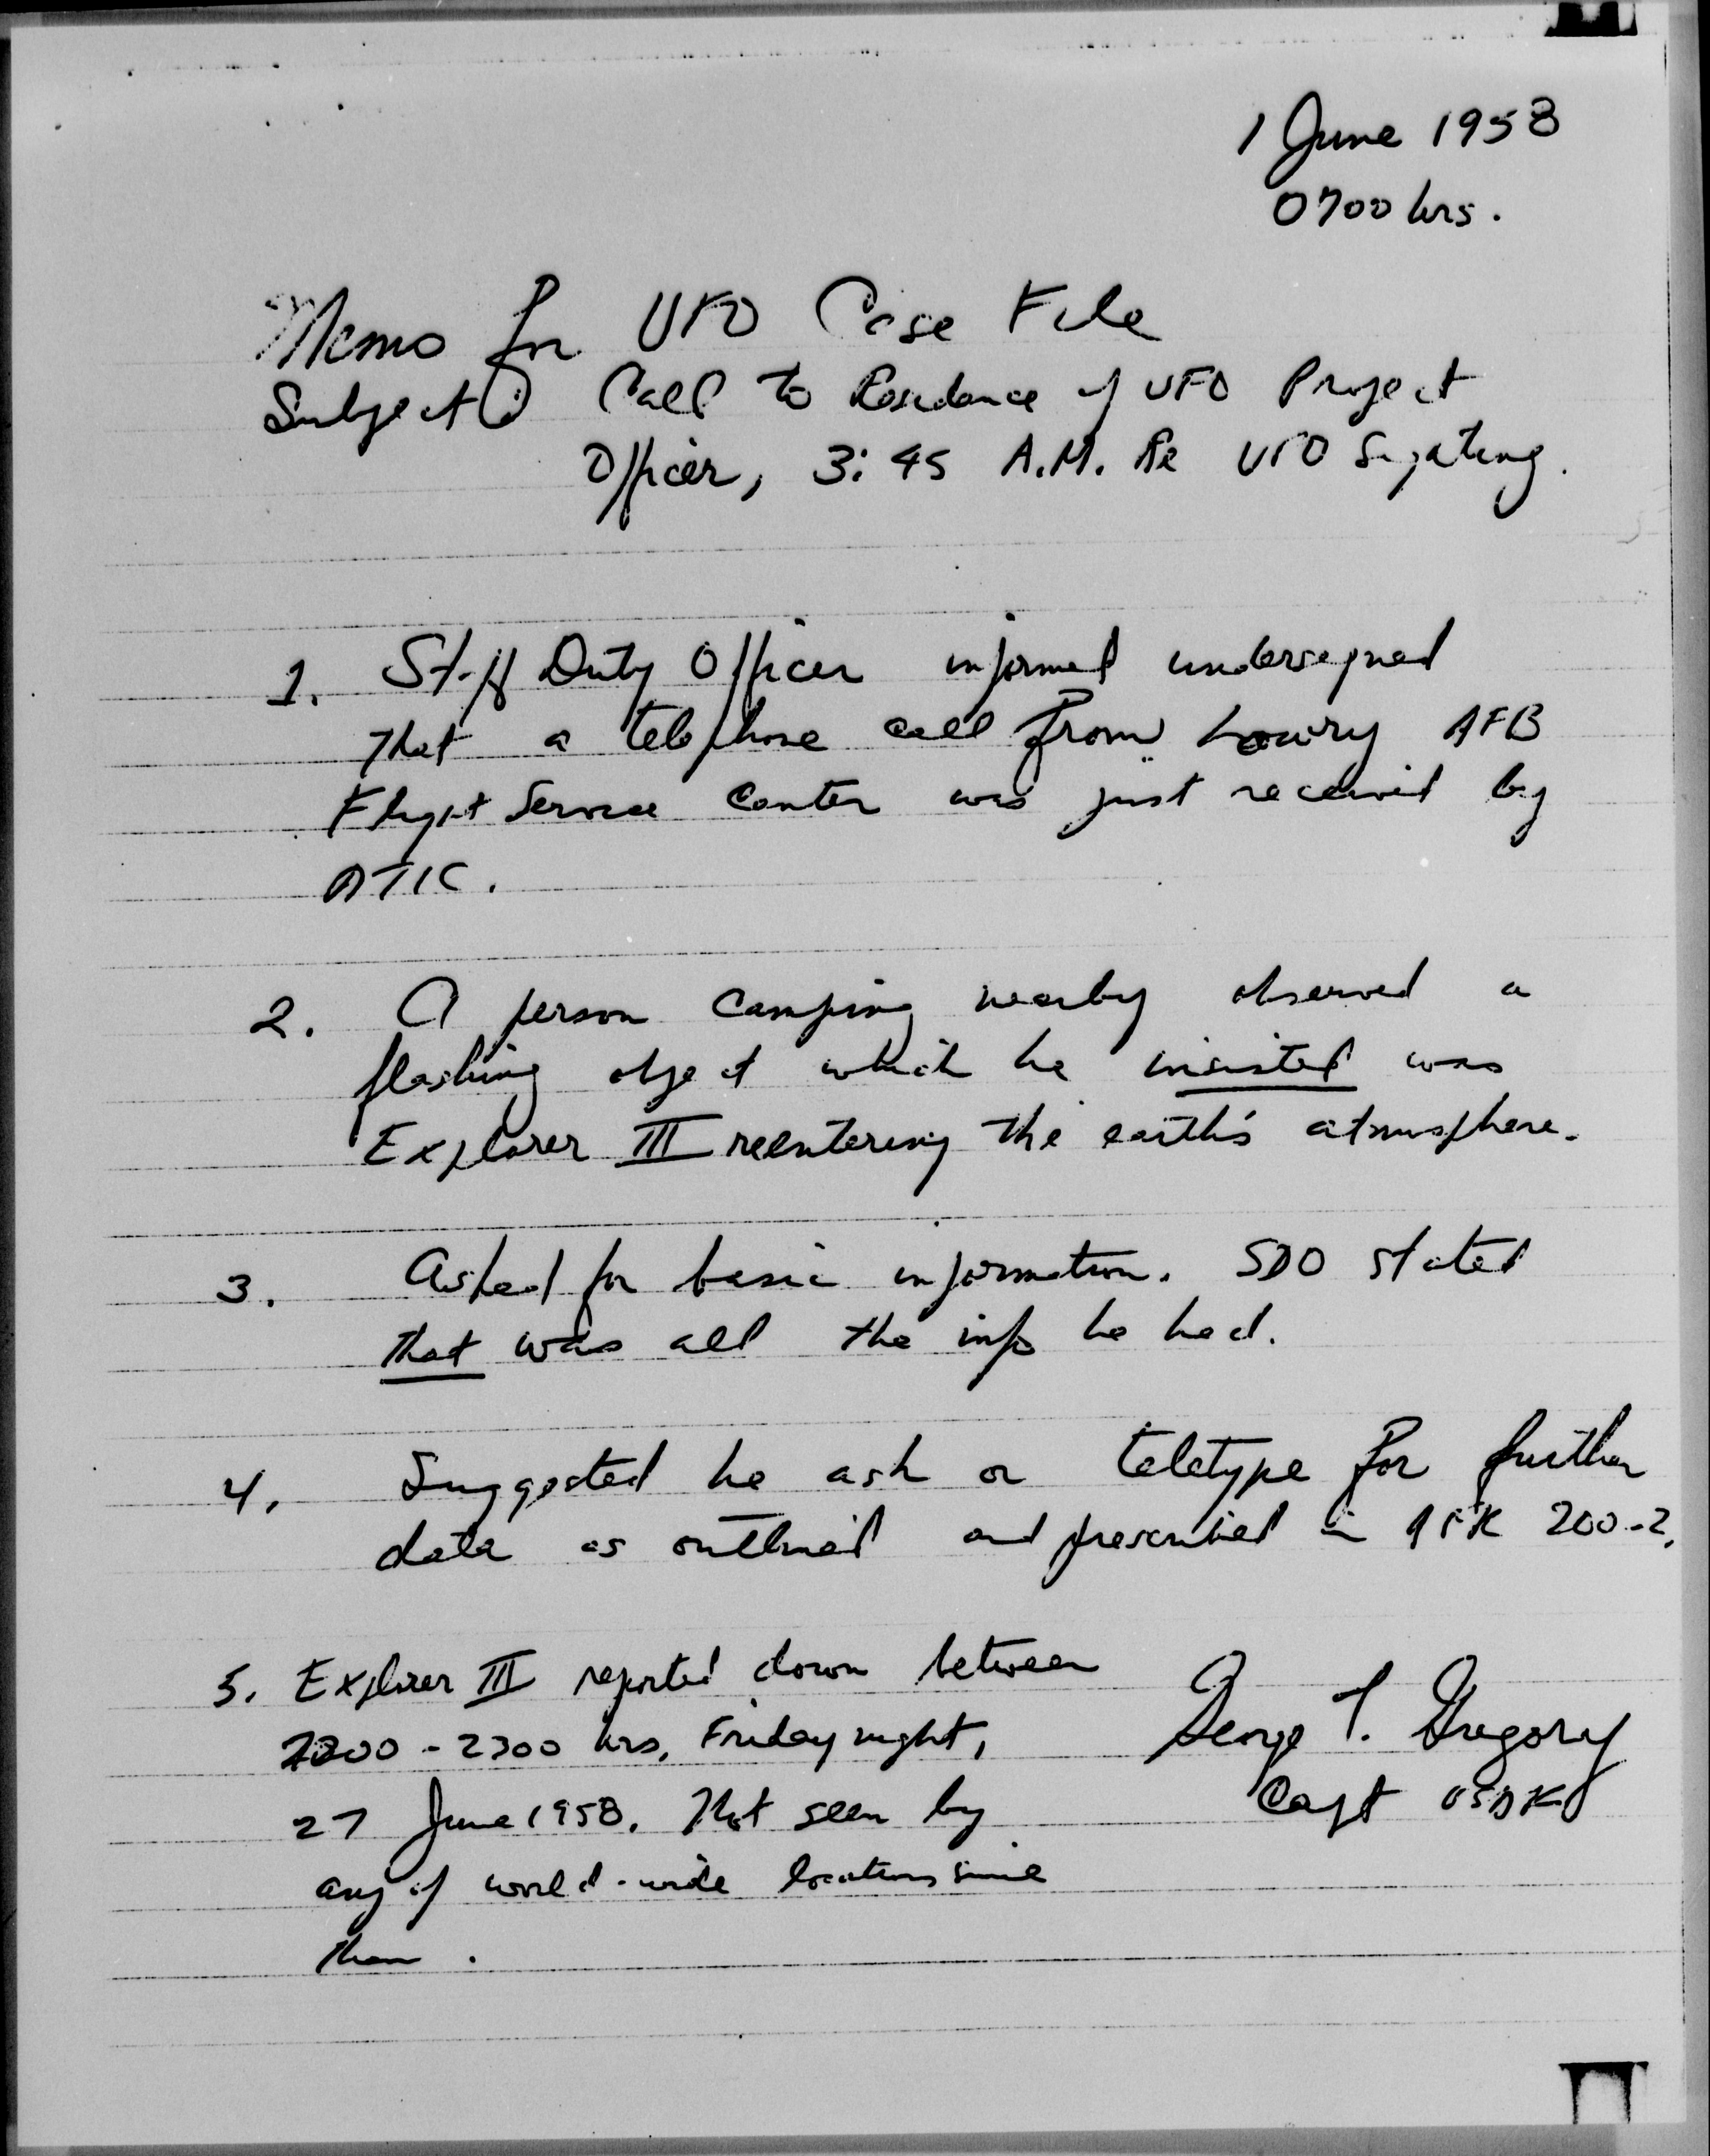 1 June 1958
0700 hrs.
Memo for UFO Case File
Subject: Call to Residence of UFO Project
Officer, 3:45 A.M. Re UFO Sighting.
1. Staff Duty Officer informed undersigned
that a telephone call from Lowry AFB
Flight Service Center was just received by
ATIC.
2. A person camping nearby observed a
flashing object which he insisted was
Explorer III reentering the earth's atmosphere.
3. Asked for basic information. SDO stated
that was all the info he had.
4. Suggested he ask or teletype for further
data as outlined and prescribed in AFR 200-2.
5. Explorer III reported down between
2200 - 2300 hrs, Friday night,
27 June 1958. Not seen by
any of world-wide locations since
then.
George T. Gregory
Capt USAF